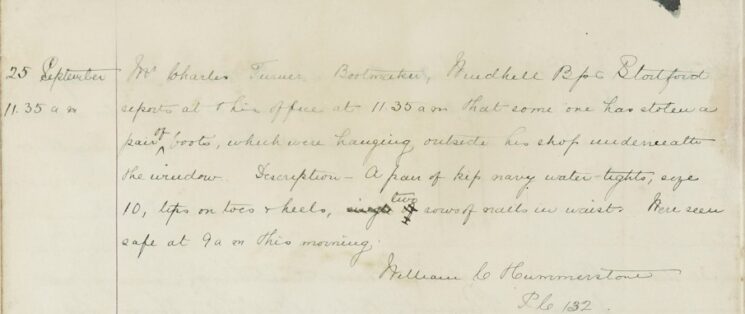 25 September Mr Charles Turner Bootmaker, Windhill Bps Stortford
11.35 a m reports at this office at 11.35 am that some one has stolen a
pair of boots, which were hanging outside his shop underneath
the window. Description - A pair of kip navy water-tights, size
10, tips on toes & heels, two rows of nails in waist. Were seen
safe at 9 a m this morning.
William C Hummerstone
P.C 132.